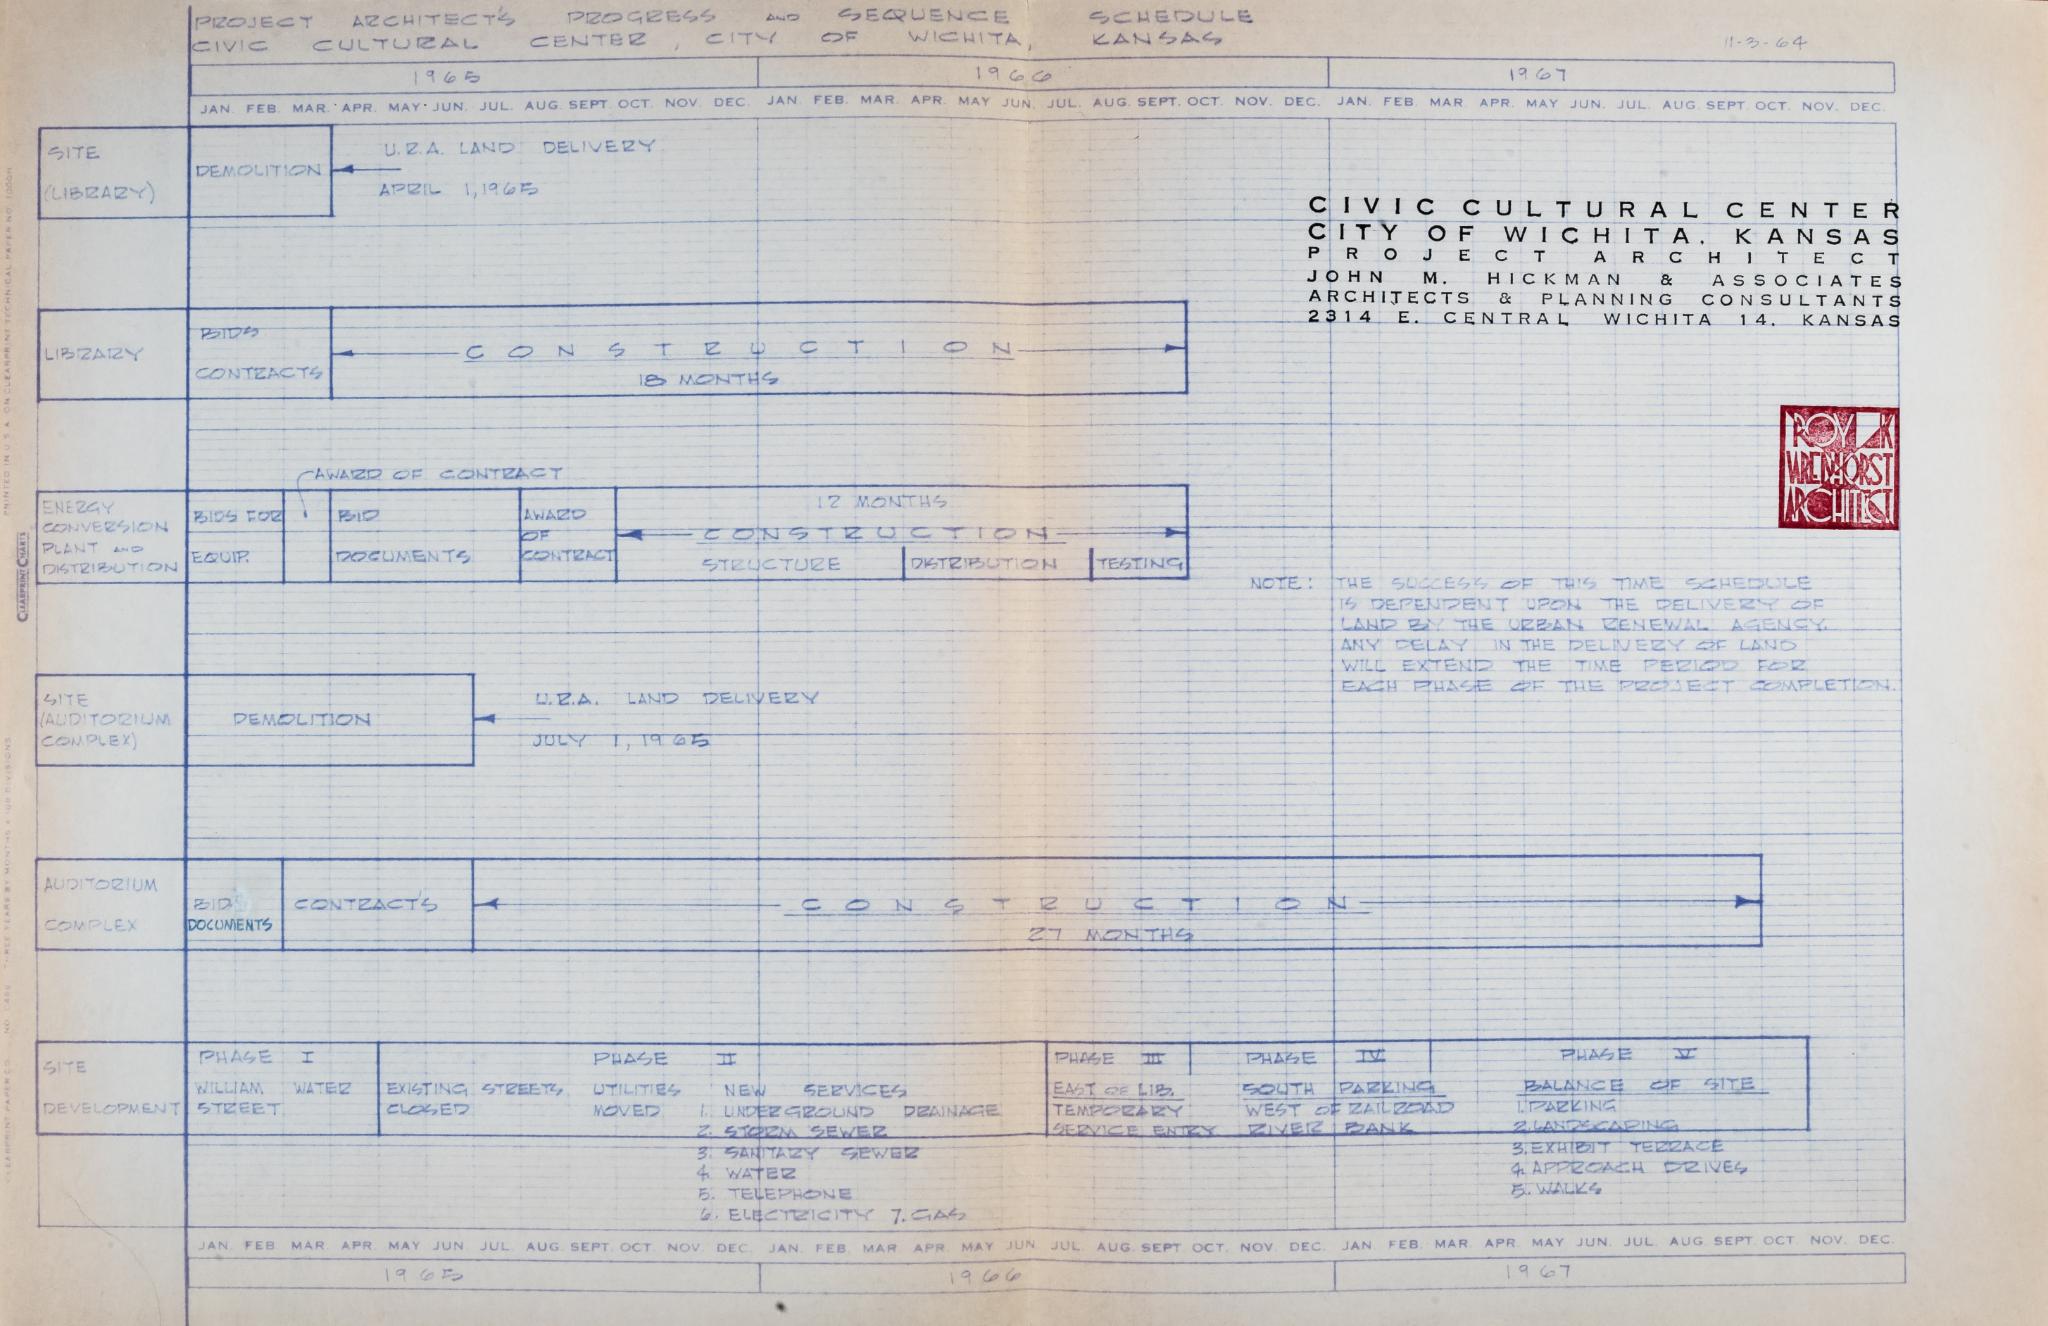 PROJECT ARCHITECT'S PROGRESS AND SEQUENCE SCHEDULE
CIVIC CULTURAL CENTER, CITY OF WICHITA, KANSAS
11-3-64
1965 1966 1967
JAN. FEB. MAR. APR. MAY. JUN. JUL. AUG. SEPT. OCT. NOV. DEC. JAN. FEB. MAR. APR. MAY JUN. JUL. AUG. SEPT. OCT. NOV. DEC. JAN. FEB. MAR. APR. MAY JUN. JUL. AUG. SEPT. OCT. NOV. DEC.
SITE
(LIBRARY)
DEMOLITION
U.R.A. LAND DELIVERY
APRIL 1, 1965
CIVIC CULTURAL CENTER
CITY OF WICHITA. KANSAS
PROJECT ARCHITECT
JOHN M. HICKMAN & ASSOCIATES
ARCHITECTS & PLANNING CONSULTANTS
2314 E. CENTRAL WICHITA 14, KANSAS
LIBRARY
BIDS
CONTRACTS
CONSTRUCTION
18 MONTHS
ROY K
VARENHORST
ARCHITECT
AWARD OF CONTRACT
ENERGY
CONVERSION
PLANT AND
DISTRIBUTION
BIDS FOR
EQUIP.
BID
DOCUMENTS
AWARD
OF
CONTRACT
12 MONTHS
CONSTRUCTION
STRUCTURE
DISTRIBUTION
TESTING
NOTE: THE SUCCESS OF THIS TIME SCHEDULE
IS DEPENDENT UPON THE DELIVERY OF
LAND BY THE URBAN RENEWAL AGENCY.
ANY DELAY IN THE DELIVERY OF LAND
WILL EXTEND THE TIME PERIOD FOR
EACH PHASE OF THE PROJECT COMPLETION.
SITE
(AUDITORIUM
COMPLEX)
DEMOLITION
U.R.A. LAND DELIVERY
JULY 1, 1965
AUDITORIUM
COMPLEX
BID
DOCUMENTS
CONTRACT'S
CONSTRUCTION
27 MONTHS
SITE
DEVELOPMENT
PHASE I
WILLIAM WATER
STREET
PHASE II
EXISTING STREETS
CLOSED
UTILITIES
MOVED
NEW SERVICES
1. UNDERGROUND DRAINAGE
2. STORM SEWER
3. SANITARY SEWER
4. WATER
5. TELEPHONE
6. ELECTRICITY 7. GAS
PHASE III
EAST OF LIB.
TEMPORARY
SERVICE ENTRY
PHASE IV
SOUTH PARKING
WEST OF RAILROAD
RIVER BANK
PHASE V
BALANCE OF SITE
1. PARKING
2. LANDSCAPING
3. EXHIBIT TERRACE
4. APPROACH DRIVES
5. WALKS
JAN. FEB. MAR. APR. MAY JUN. JUL. AUG. SEPT. OCT. NOV. DEC. JAN. FEB. MAR. APR. MAY JUN. JUL. AUG. SEPT. OCT. NOV. DEC. JAN. FEB. MAR. APR. MAY JUN. JUL. AUG. SEPT. OCT. NOV. DEC.
1965 1966 1967
PRINTED IN U.S.A. ON CLEARPRINT TECHNICAL PAPER NO. 1000H
CLEARPRINT CHARTS
THREE YEARS BY MONTHS X 100 DIVISIONS
CLEARPRINT PAPER CO.